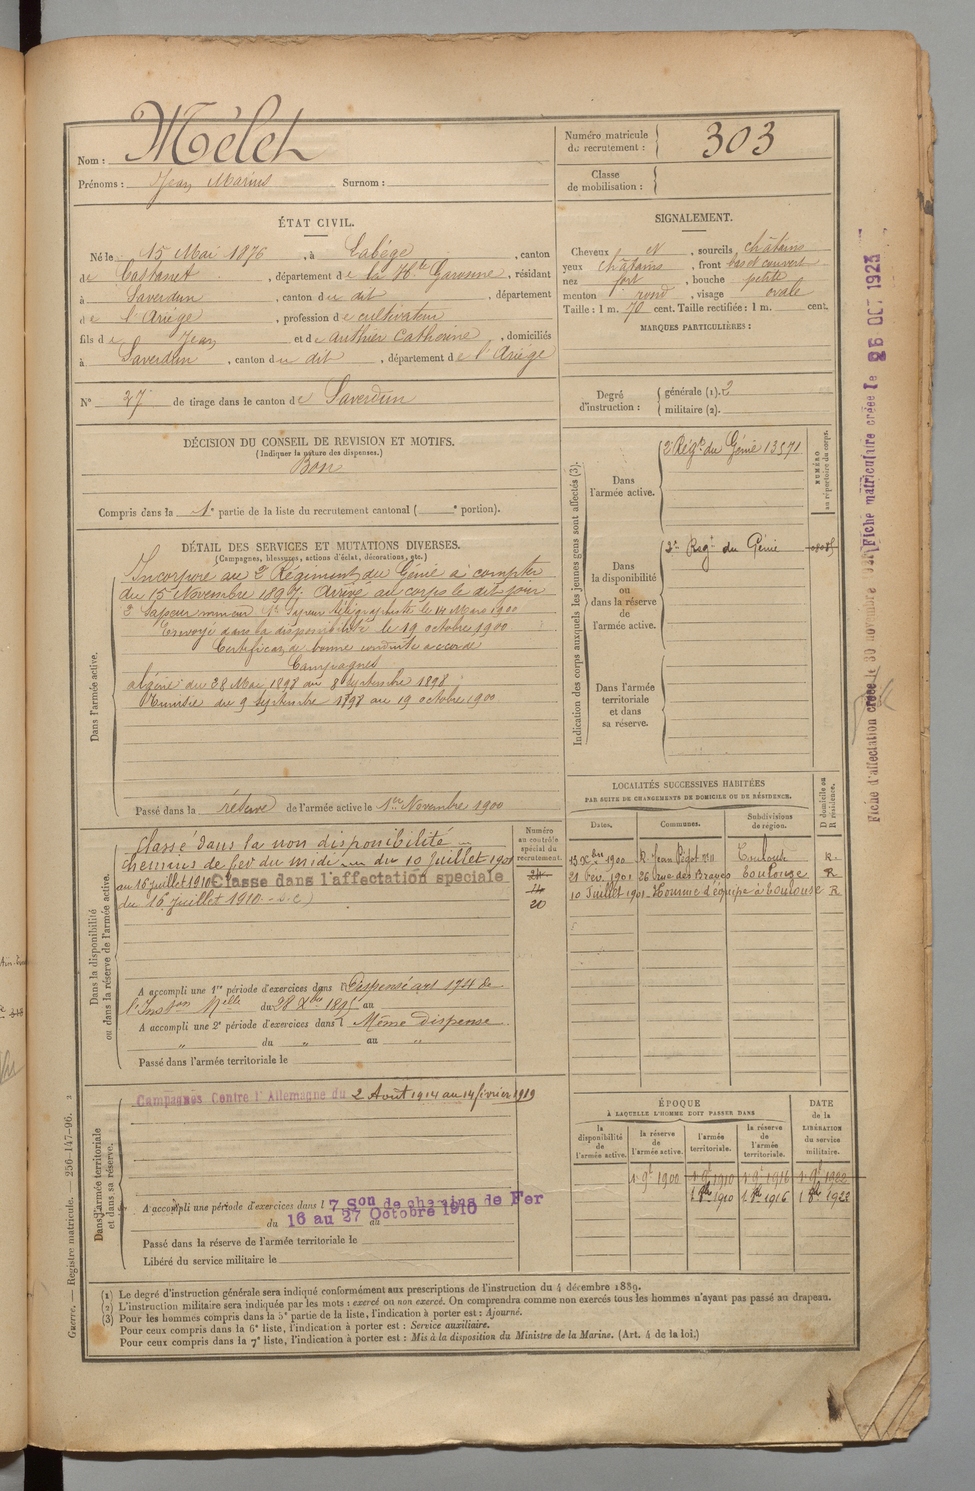 Nom : Mélet
Prénoms : Jean Marius Surnom :
Numéro matricule du recrutement : 303
Classe de mobilisation :
ÉTAT CIVIL.
Né le 15 Mai 1876, à Labége, canton
de Castanet, département de la Hte Garonne, résidant
à Saverdun, canton du dit, département
de l'Ariège, profession de cultivateur
fils de Jean et de Authier Catherine, domiciliés
à Saverdun, canton du dit, département de l'Ariège
N° 37 de tirage dans le canton de Saverdun
SIGNALEMENT.
Cheveux et, sourcils châtains
yeux châtains, front bas et couvert
nez fort, bouche petite
menton rond, visage ovale
Taille : 1 m. 70 cent. Taille rectifiée : 1 m. cent.
MARQUES PARTICULIÈRES :
Degré d'instruction : générale (1). 2
militaire (2).
DÉCISION DU CONSEIL DE REVISION ET MOTIFS.
(Indiquer la nature des dispenses.)
Bon
Compris dans la 1e partie de la liste du recrutement cantonal ( e portion).
DÉTAIL DES SERVICES ET MUTATIONS DIVERSES.
(Campagnes, blessures, actions d'éclat, décorations, etc.)
Dans l'armée active.
Incorporé au 2e Régiment du Génie à compter
du 15 Novembre 1897. Arrivé au corps le dit jour
2e Sapeur mineur télégraphiste le 14 Mars 1900
Envoyé dans la disponibilité le 19 octobre 1900
Certificat de bonne conduite accordé
Campagnes
algérie du 28 Mai 1898 au 8 Septembre 1898
Tunisie du 9 Septembre 1898 au 19 octobre 1900
Passé dans la réserve de l'armée active le 1er Novembre 1900
Indication des corps auxquels les jeunes gens sont affectés (3).
NUMÉRO au répertoire du corps.
Dans l'armée active. 2e Régt du Génie 13571
Dans la disponibilité ou dans la réserve de l'armée active. 2e Regt du Génie
Dans l'armée territoriale et dans sa réserve.
Dans la disponibilité ou dans la réserve de l'armée active.
Classé dans la non disponibilité
chemins de fer du midi du 10 Juillet 1901
au 16 juillet 1910 Classé dans l'affectation spéciale
du 16 juillet 1910
Numéro au contrôle spécial du recrutement.
14
20
A accompli une 1re période d'exercices dans Dispensé art 174 de
l'Inston Melle du 28 Xbre 1895 au
A accompli une 2e période d'exercices dans l Même dispense
„ du „ au „
Passé dans l'armée territoriale le
LOCALITÉS SUCCESSIVES HABITÉES
PAR SUITE DE CHANGEMENTS DE DOMICILE OU DE RÉSIDENCE.
Dates. Communes. Subdivisions de région. D domicile ou R résidence.
13 Xbre 1900 Toulouse R.
21 Fév. 1901 26 Rue des Blancs Toulouse R
10 Juillet 1901 Homme d'équipe à Toulouse R
Dans l'armée territoriale et dans sa réserve.
Campagnes Contre l'Allemagne du 2 Août 1914 au 14 février 1919
A accompli une période d'exercices dans l 7 Son de chemins de Fer
du 16 au 27 Octobre 1910 au
Passé dans la réserve de l'armée territoriale le
Libéré du service militaire le
ÉPOQUE
À LAQUELLE L'HOMME DOIT PASSER DANS
DATE de la LIBÉRATION du service militaire.
la disponibilité de l'armée active. la réserve de l'armée active. l'armée territoriale. la réserve de l'armée territoriale.
1 9bre 1900 1 9bre 1910 1 9bre 1916 1 9bre 1922
1 8bre 1910 1 8bre 1916 1 8bre 1922
(1) Le degré d'instruction générale sera indiqué conformément aux prescriptions de l'instruction du 4 décembre 1889.
(2) L'instruction militaire sera indiquée par les mots : exercé ou non exercé. On comprendra comme non exercés tous les hommes n'ayant pas passé au drapeau.
(3) Pour les hommes compris dans la 5e partie de la liste, l'indication à porter est : Ajourné.
Pour ceux compris dans la 6e liste, l'indication à porter est : Service auxiliaire.
Pour ceux compris dans la 7e liste, l'indication à porter est : Mis à la disposition du Ministre de la Marine. (Art. 4 de la loi.)
Guerre. — Registre matricule. — 256-147-96. 2
Fiche d'affectation créée le 30 novembre
Fiche matriculaire créée le 25 OCT 1923